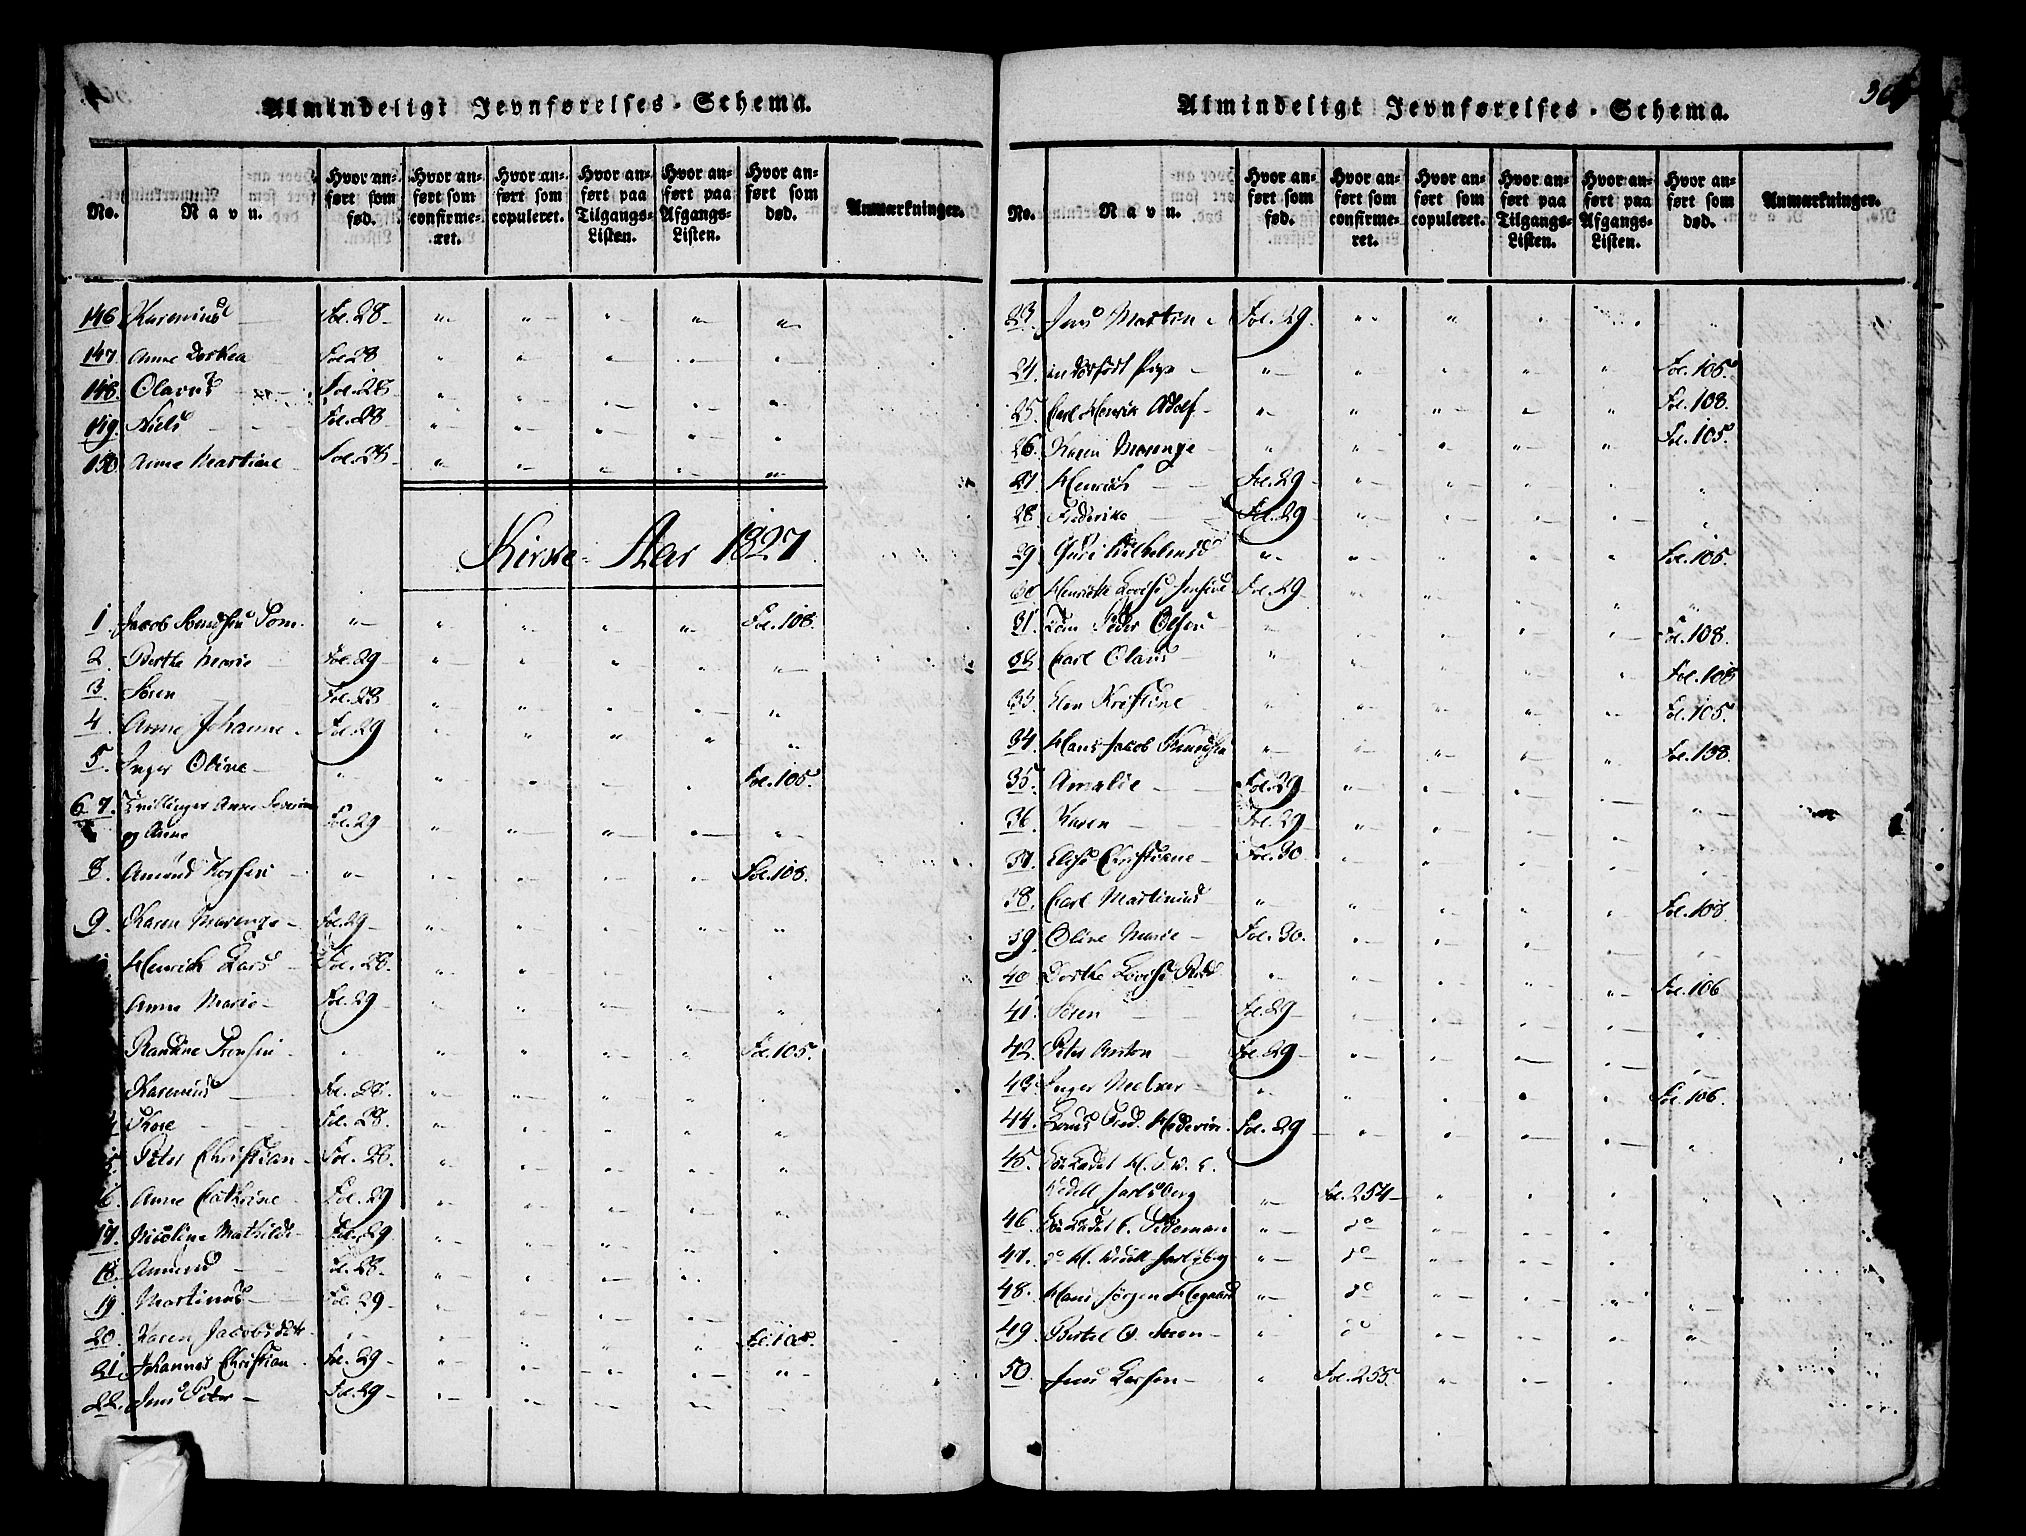 Almindeligt Jevnførelses-Schema.
No. Navn. Hvor anført som fød. Hvor anført som confirmeret. Hvor anført som copuleret. Hvor anført paa Tilgangs-Listen. Hvor anført paa Afgangs-Listen. Hvor anført som død. Anmærkninger.
146 Karenius Fol. 28 " " " " "
147 Anne Dorthea Fol. 28 " " " " "
148. Olavus Fol. 28 " " " " "
149. Niels Fol. 28 " " " " "
150 Anne Martine Fol. 28 " " " " "
Kirke-Aar 1827
1. " " " " " Fol. 108.
2. Berthe Marie Fol. 29 " " " " "
3. Søren Fol. 28 " " " " "
4. Anne Johanne Fol. 29 " " " " "
5. Inger Oline " " " " " Fol. 105.
6 7. Tvillinger Anne Severine
og Anne Fol. 29 " " " " "
8. Amund " " " " " Fol. 108.
9. Karen Marenge Fol. 29 " " " " "
Henrich Lars Fol. 28. " " " " "
Anne Marie Fol. 29 " " " " "
Randine " " " " " Fol. 105.
Karenius Fol. 28. " " " " "
Thore Fol. 28. " " " " "
Peter Christian Fol. 28. " " " " "
6. Anne Cathrine Fol. 29 " " " " "
17. Nicoline Mathilde Fol. 29 " " " " "
18. Amund Fol. 28. " " " " "
19 Martinus Fol. 29 " " " " "
20. Karen Jacobsdatr " " " " " Fol. 105.
21. Johannes Christian Fol. 29 " " " " "
22. Jens Peter Fol. 29 " " " " "
Almindeligt Jevnførelses-Schema.
No. Navn. Hvor anført som fød. Hvor anført som confirmeret. Hvor anført som copuleret. Hvor anført paa Tilgangs-Listen. Hvor anført paa Afgangs-Listen. Hvor anført som død. Anmærkninger.
23. Jens Martin Fol. 29. " " " " "
24. en dødfødt Pige " " " " " Fol. 105.
25. Carl Henrik Adolf " " " " " Fol. 108.
26. Karen Marenge " " " " " Fol. 105.
27 Henrich Fol. 29 " " " " "
28. Frederike Fol. 29 " " " " "
29 " " " " " Fol. 105.
30 Henrikke Lovise Fol. 29 " " " " "
31. Peder Olsen " " " " " Fol. 108.
32. Carl Olaus " " " " " Fol. 108
33 Elen Kristine " " " " " Fol. 105.
34. Hans Jacob Knudsen " " " " " Fol. 108.
35. Amalie Fol. 29 " " " " "
36. Karen Fol. 29 " " " " "
37. Elise Christiane Fol. 30 " " " " "
38. Carl Martinius " " " " " Fol. 108
39. Oline Marie Fol. 30. " " " " "
40 Dorthe Lovise " " " " " Fol. 106
41. Søren Fol. 29 " " " " "
42. Peter Anton Fol. 29 " " " " "
43. Inger " " " " " Fol. 106.
44. Fred. Fol. 29 " " " " "
45. Søe Cadet H. F. W. C.
Wedell Jarlsberg " Fol. 254 " " " "
46. Søe Cadet C. Tideman " do " " " "
47. do H. Wedell Jarlsberg " do " " " "
48. Hans Jørgen " do " " " "
49. Bertel O. Steen " do " " " "
50. Jens Larsen " Fol. 255. " " " "